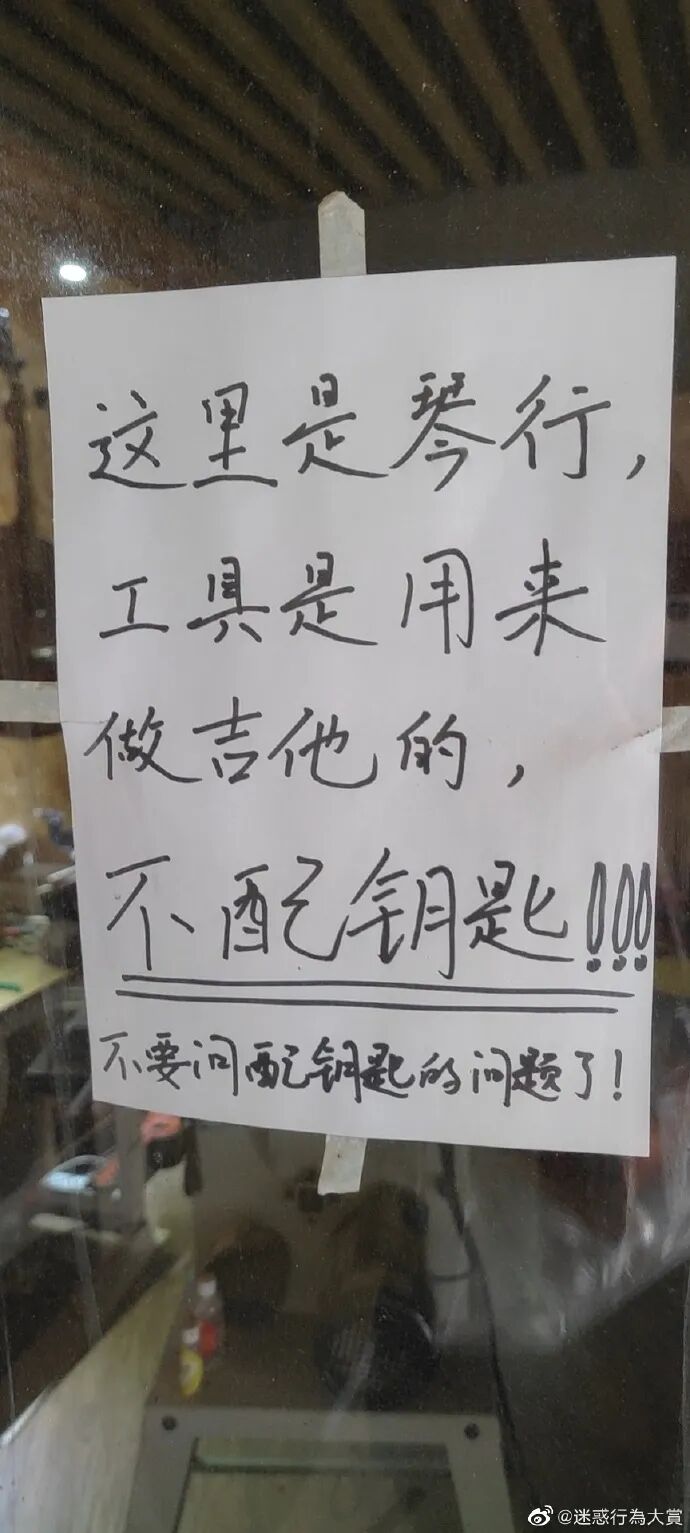 这里是琴行,
工具是用来
做吉他的,
不配钥匙!!!
不要问配钥匙的问题了!
@迷惑行為大賞